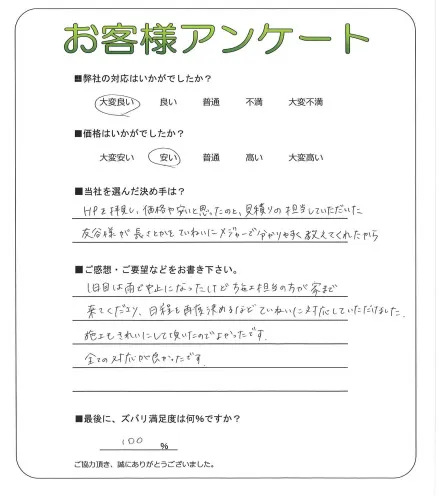 お客様アンケート
■弊社の対応はいかがでしたか？
大変良い 良い 普通 不満 大変不満
■価格はいかがでしたか？
大変安い 安い 普通 高い 大変高い
■当社を選んだ決め手は？
HPを拝見し、価格が安いと思ったのと、見積りの担当していただいた
灰谷様が長さとかをていねいにメジャーで分かりやすく教えてくれたから
■ご感想・ご要望などをお書き下さい。
1日目は雨で中止になったけど施工担当の方が家まで
来てくださり、日程を再度決めるなどていねいに対応していただけました。
施工もきれいにして頂いたのでよかったです。
全ての対応が良かったです。
■最後に、ズバリ満足度は何%ですか？
100 %
ご協力頂き、誠にありがとうございました。